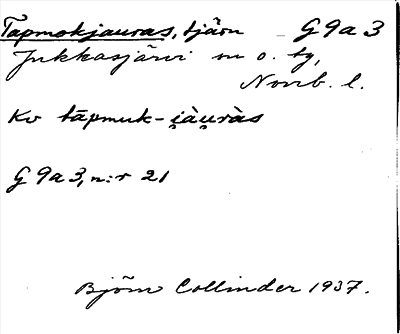 Tapmokjauras, tjärn – G 9 a 3
Jukkasjärvi sn o. tg,
Norrb. l.
Kv tāpmuk-i̯àu̯ràs
G 9a3, n:r 21
Björn Collinder 1937.